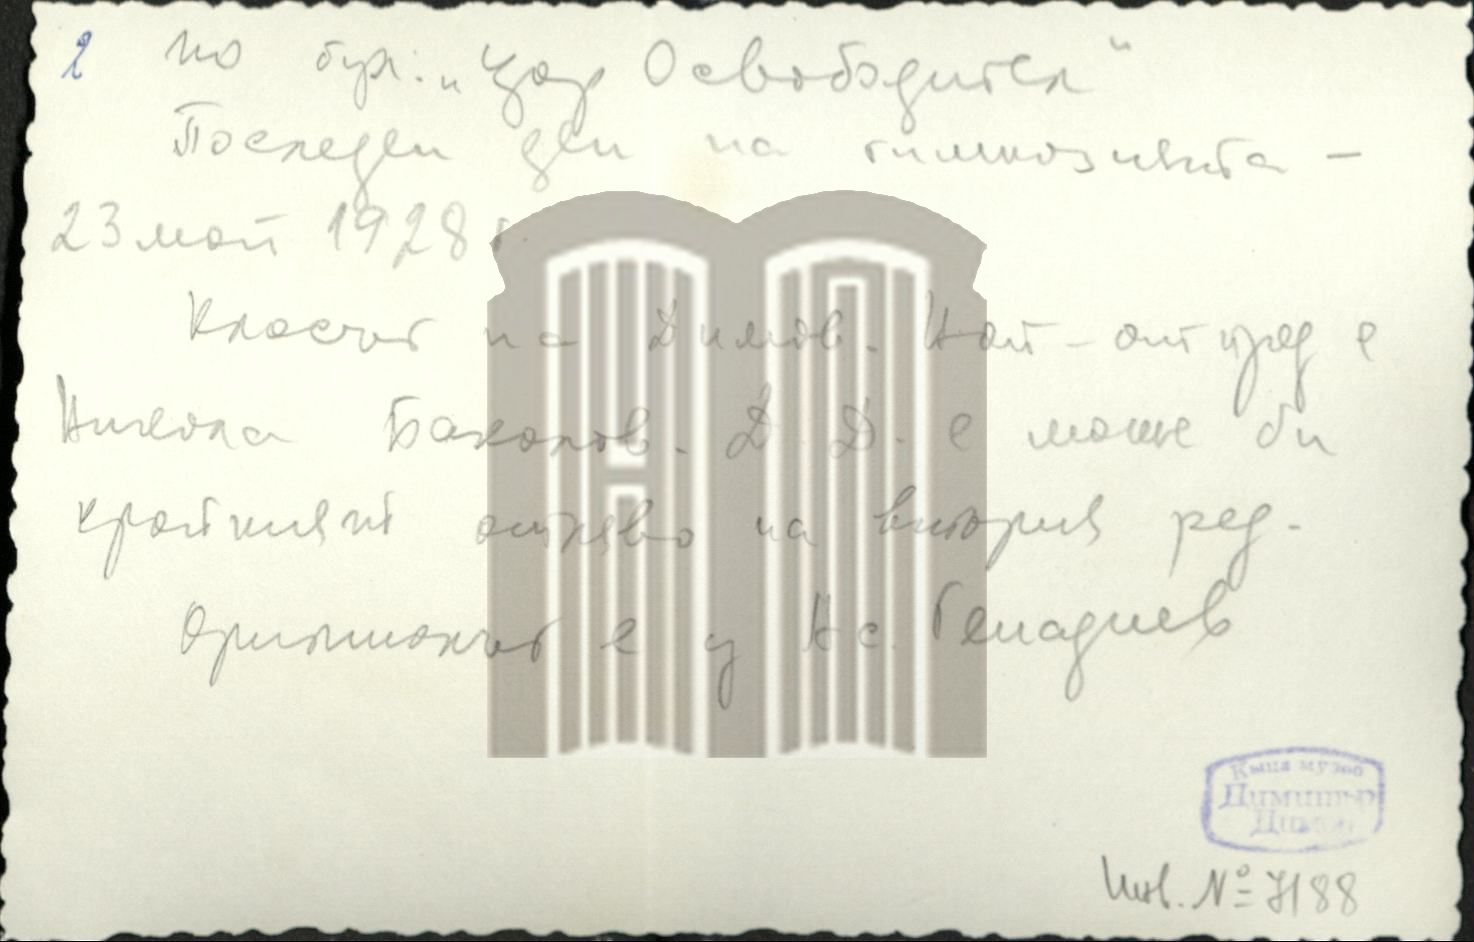 2 по бул. „Цар Освободител“
Последен ден на гимназията –
23 май 1928 г.
Класът на Димов. Най-отпред е
Никола Бакалов. Д. Д. е може би
крайният отляво на втория ред.
Оригиналът е у Ас. Генадиев
Къща музей
Димитър
Димов
Инв. № 7188